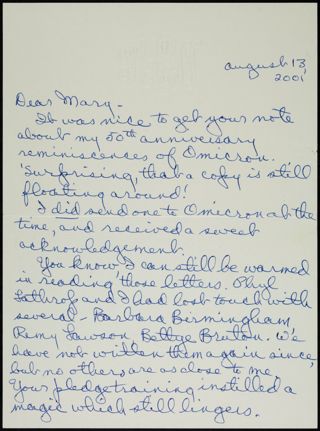 August 13,
2001
Dear Mary -
It was nice to get your note
about my 50th anniversary
reminiscences of Omicron.
Surprising, that a copy is still
floating around!
I did send one to Omicron at the
time, and received a sweet
acknowledgement.
You know I can still be warmed
in reading those letters. Phyl
Lathrop and I had lost touch with
several - Barbara Birmingham,
Remy Lawson, Bettye Breton. We
have not written them again since,
but no others are as close to me.
Your pledge training instilled a
magic which still lingers.